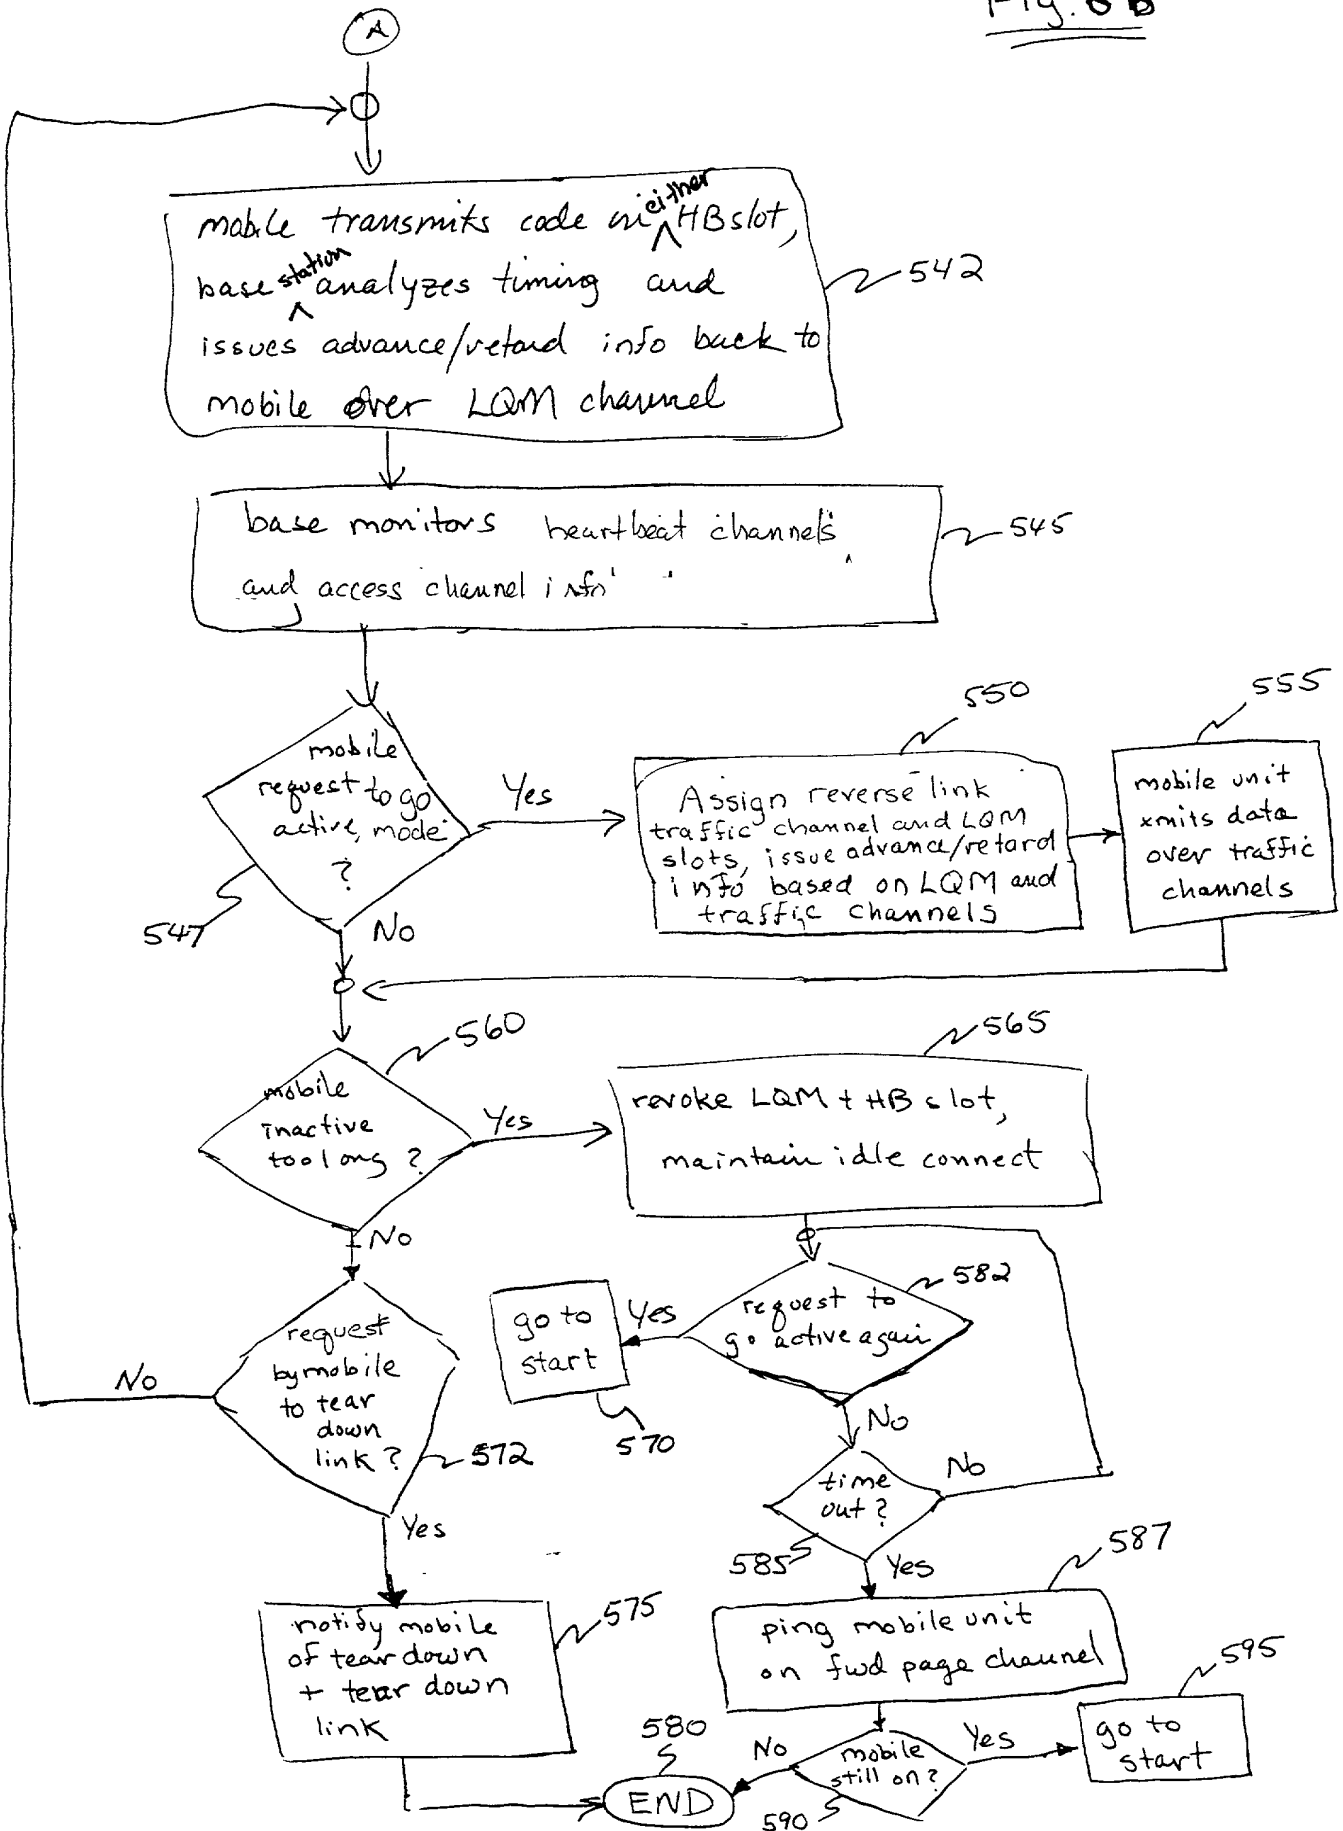 Fig. 8B
A
mobile transmits code on either HB slot,
base station analyzes timing and
issues advance/retard info back to
mobile over LQM channel
542
base monitors heartbeat channels
and access channel info
545
mobile
request to go
active mode
?
547
Yes
No
550
Assign reverse link
traffic channel and LQM
slots, issue advance/retard
info based on LQM and
traffic channels
555
mobile unit
xmits data
over traffic
channels
560
mobile
inactive
too long ?
Yes
No
565
revoke LQM + HB slot,
maintain idle connect
582
request to
go active again
Yes
go to
start
570
No
request
by mobile
to tear
down
link ?
572
No
Yes
time
out ?
585
No
Yes
587
ping mobile unit
on fwd page channel
notify mobile
of tear down
+ tear down
link
575
580
END
No
mobile
still on ?
590
Yes
595
go to
start